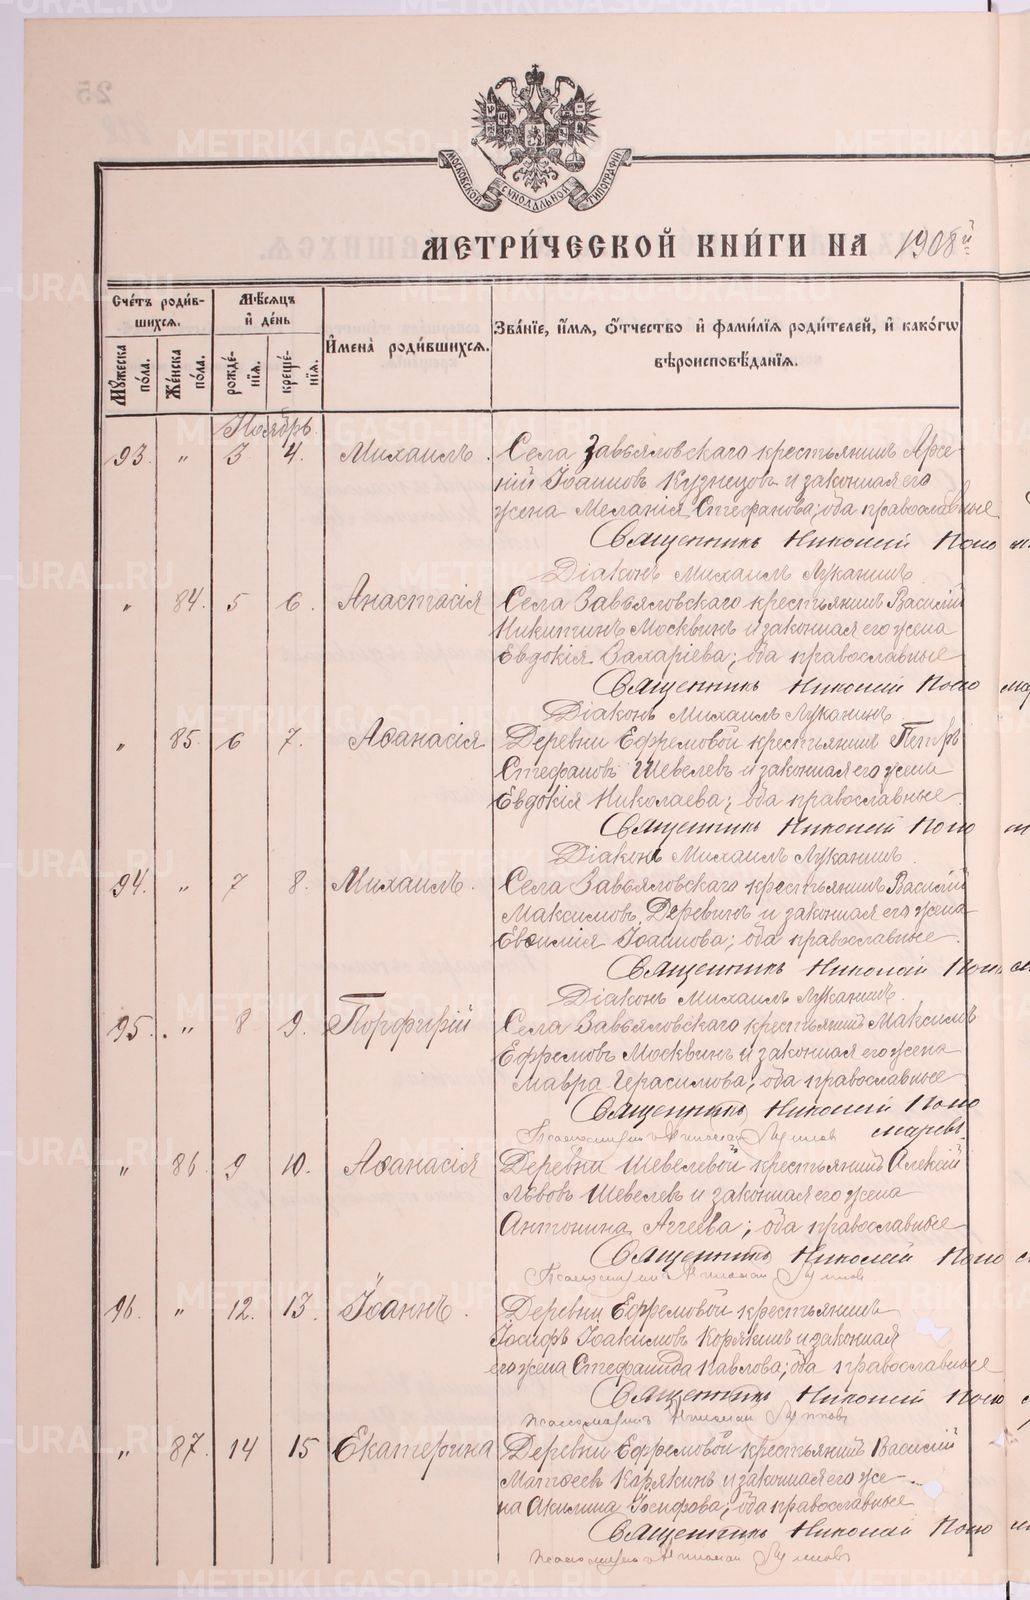 METRIKI.GASO-URAL.RU
25
МОСКОВСКОЙ СѴНОДАЛЬНОЙ ТИПОГРАФІИ
МЕТРИ́ЧЕСКОЙ КНИ́ГИ НА 1908й
Сче́тъ роди́вшихсѧ.
Мѣ́сѧцъ и҆ де́нь
И҆мена̀ роди́вшихсѧ.
Зва́нїе, и҆́мѧ, ѻ҆́тчество и҆ фами́лїѧ роди́телей, и҆ како́гѡ вѣроисповѣ́данїѧ.
Мꙋ́жеска по́ла.
Же́нска по́ла.
рожде́нїѧ.
креще́нїѧ.
Ноябрь
93. " 3 4. Михаилъ. Села Завьяловскаго крестьянинъ Арсе-
ній Іоанновъ Кузнецовъ и законная его
жена Меланія Стефанова; оба православные
Священникъ Николай Поно
Діаконъ Михаилъ Луканинъ.
" 84. 5 6. Анастасія Села Завьяловскаго крестьянинъ Василій
Никитинъ Москвинъ и законная его жена
Евдокія Захаріева; оба православные
Священникъ Николай Поно
Діаконъ Михаилъ Луканинъ
" 85. 6 7. Аѳанасія Деревни Ефремовой крестьянинъ Петръ
Стефановъ Шевелевъ и законная его жена
Евдокія Николаева; оба православные
Священникъ Николай Поно
Діаконъ Михаилъ Луканинъ.
94. " 7 8. Михаилъ. Села Завьяловскаго крестьянинъ Василій
Максимовъ Деревинъ и законная его жена
Евѳимія Іоаннова; оба православные.
Священникъ Николай Поно
Діаконъ Михаилъ Луканинъ.
95. " 8 9. Порфирій Села Завьяловскаго крестьянинъ Максимъ
Ефремовъ Москвинъ и законная его жена
Мавра Герасимова; оба православные
Священникъ Николай Поно
маревъ.
" 86. 9 10. Аѳанасія Деревни Шевелевой крестьянинъ Алексій
Львовъ Шевелевъ и законная его жена
Антонина Аггеева; оба православные
Священникъ Николай Поно
96. " 12. 13. Іоаннъ. Деревни Ефремовой крестьянинъ
Іосифъ Іоакимовъ Корякинъ и законная
его жена Стефанида Павлова; оба православные
Священникъ Николай Поно
" 87. 14 15 Екатерина Деревни Ефремовой крестьянинъ Василій
Матѳеевъ Корякинъ и законная его же-
на Акилина Іосифова; оба православные
Священникъ Николай Поно